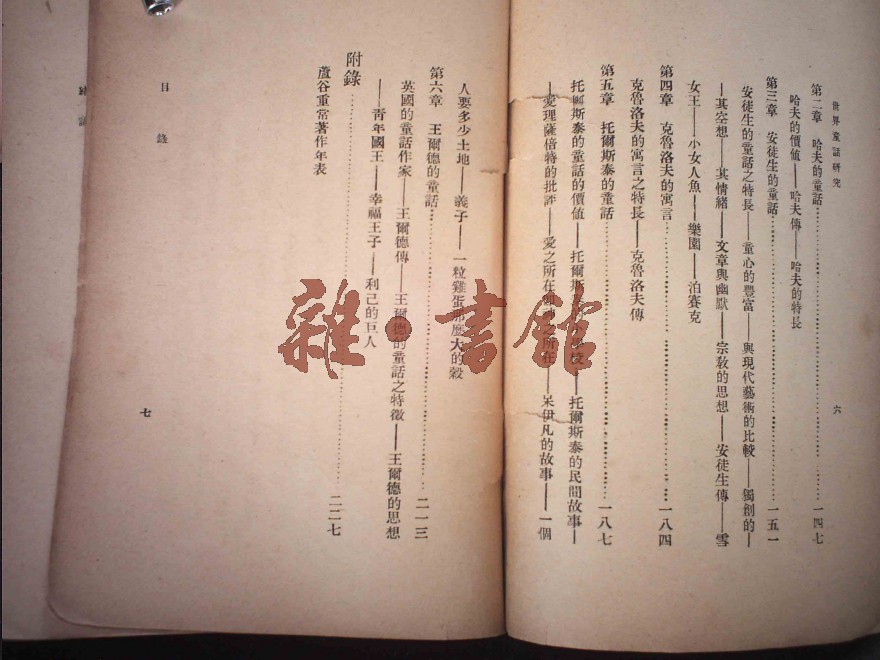 世界童話研究
六
第二章 哈夫的童話…………一四七
哈夫的價値——哈夫傳——哈夫的特長
第三章 安徒生的童話…………一五一
安徒生的童話之特長——童心的豐富——與現代藝術的比較——獨創的—
—其空想——其情緒——文章與幽默——宗敎的思想——安徒生傳——雪
女王——小女人魚——樂園——泊賽克
第四章 克魯洛夫的寓言…………一八四
克魯洛夫的寓言之特長——克魯洛夫傳
第五章 托爾斯泰的童話…………一八七
托爾斯泰的童話的價値——托爾斯泰——托爾斯泰的民間故事—
—愛理薩倍特的批評——愛之所在——呆伊凡的故事——一個
人要多少土地——義子——一粒雞蛋那麼大的穀
第六章 王爾德的童話…………二一三
英國的童話作家——王爾德傳——王爾德的童話之特徵——王爾德的思想
——靑年國王——幸福王子——利己的巨人
附錄…………二二七
蘆谷重常著作年表
目錄
七
雜·書館